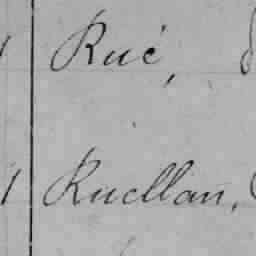 Rué,
1 Ruellan,